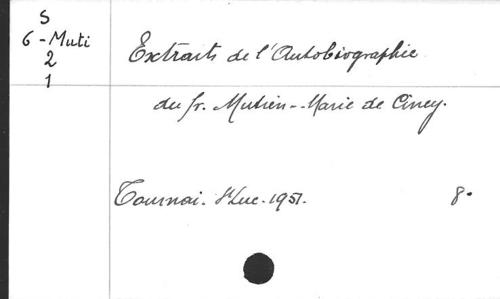 S
6-Muti
2
1
Extraits de l'Autobiographie
du fr. Mutien-Marie de Ciney.
Tournai. St Luc. 1951. 8°